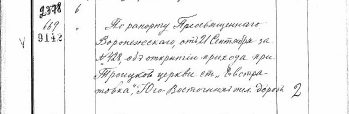 2378 6
169 "
9142 По рапорту Преосвященнаго
Воронежскаго, отъ 21 Сентября за
№ 928, объ открытіи прихода при
Троицкой церкви ст. „Евстра-
товка" Юго-Восточныхъ жел. дорогъ 2